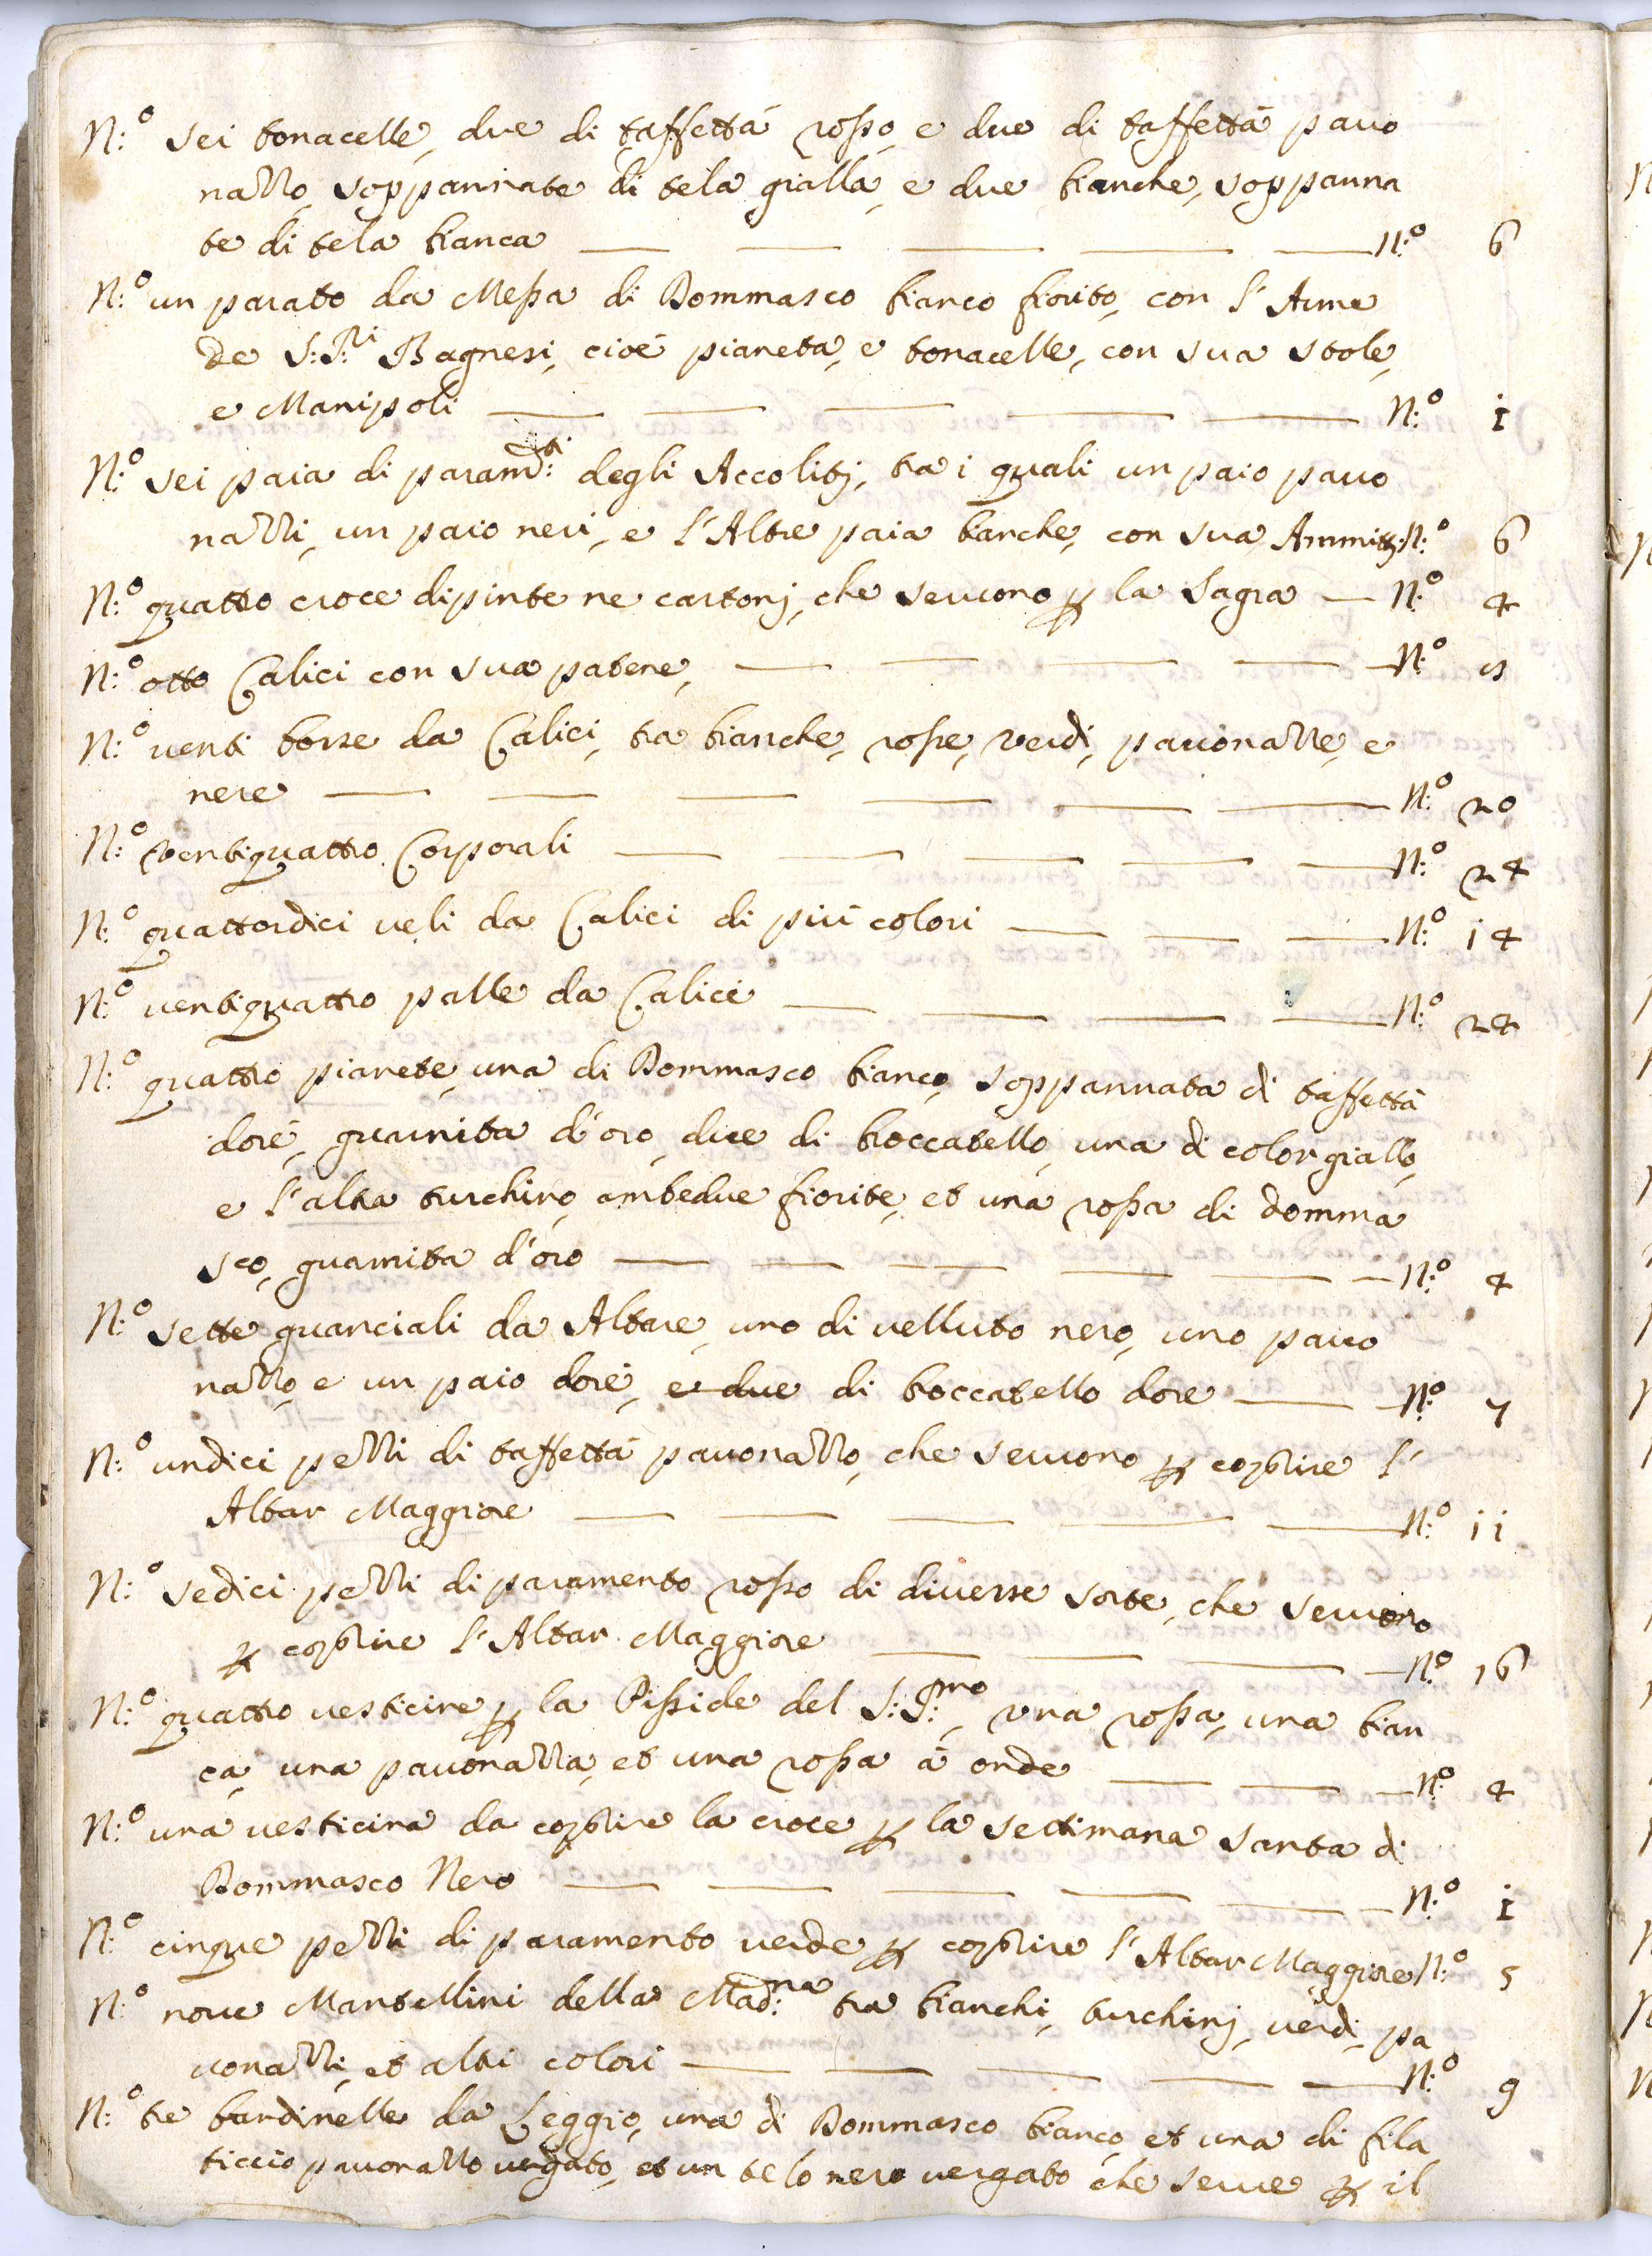 N:o sei tonacelle, due di taffettà rosso, e due di taffettà pauo
nazzo, soppannate di tela gialla, e due bianche, soppanna
te di tela bianca N:o 6
N:o un parato da Messa di Dommasco bianco fiorito, con l'Arme
de S:S:ri Bagnesi, cioè pianeta, e tonacelle, con sua stole,
e Manipoli N:o 1
N:o sei paia di param:ti degli Accoliti, tra i quali un paio pauo
nazzi, un paio neri, e l'Altre paia bianche, con sua Ammitti N:o 6
N:o quattro croce dipinte ne cartonj, che seruono p la Sagra N:o 4
N:o otto Calici con sua patene, N:o 8
N:o uenti borse da Calici, tra bianche, rosse, verdi, pauonazze, e
nere N:o 20
N:o ventiquattro Corporali N:o 24
N:o quattordici ueli da Calici di più colori N:o 14
N:o uentiquattro palle da Calici N:o 24
N:o quattro pianete, una di Dommasco bianco, soppannata di taffettà
dorè, guarnita d'oro, due di broccatello, una di color giallo,
e l'altra turchino, ambedue fiorite, et una rossa di domma
sco, guarnita d'oro N:o 4
N:o sette guanciali da Altare, uno di uelluto nero, uno pauo
nazzo, e un paio dorè, e due di broccatello dore N:o 7
N:o undici pezzi di taffettà pauonazzo, che seruono p coprire l'
Altar Maggiore N:o 11
N:o sedici pezzi di paramento rosso di diuerse sorte, che seruono
p coprire l'Altar Maggiore N:o 16
N:o quattro uesticine p la Pisside del S:S:mo, vna rossa, una bian
ca, una pauonazza, et una rossa à onde N:o 4
N:o una uesticina da coprire la croce p la settimana santa di
Dommasco Nero N:o 1
N:o cinque pezzi di paramento uerde p coprire l'Altar Maggiore N:o 5
N:o noue Mantellini della Mad:na tra bianchi, turchinj, uerdi, pa
uonazzi, et altri colori N:o 9
N:o tre bandinelle da Leggio, una di Dommasco bianco, et una di fila
ticcio pauonazzo uergato, et un telo nero uergato che serue p il